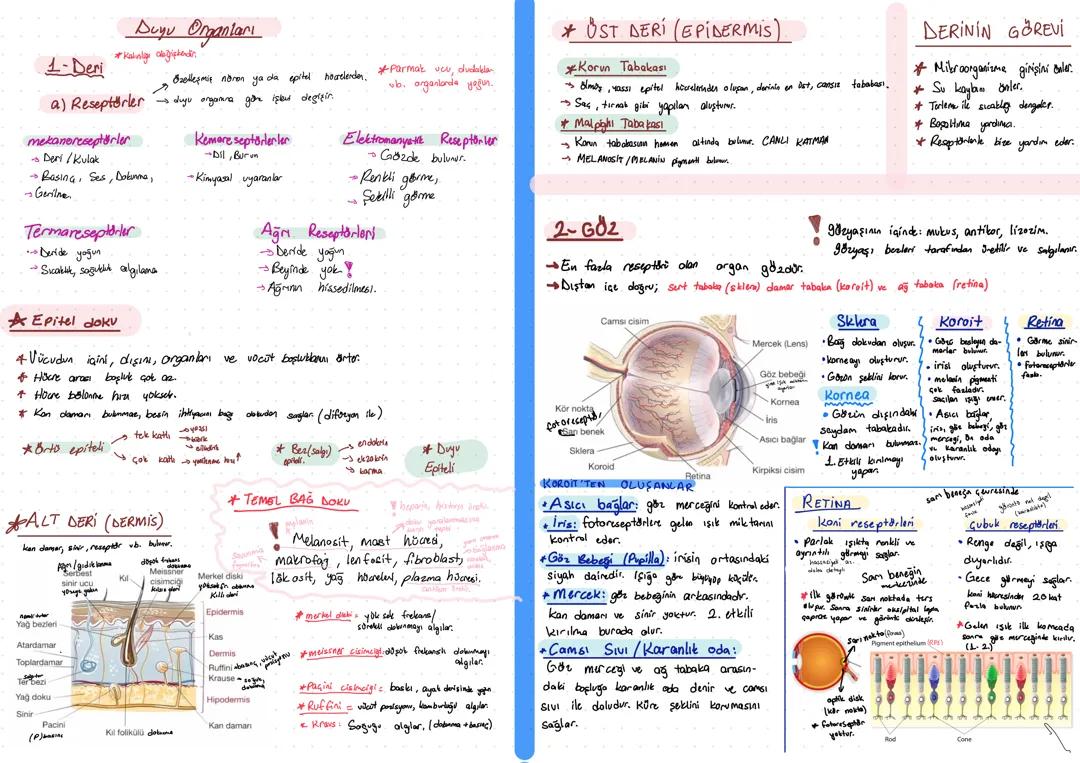 Duyu Organları
1-Deri
* Kalınlığı değişkendir.
a) Reseptörler
→ özelleşmiş nöron ya da epitel hücrelerden.
→ duyu organına göre işlevi değişir.
* Parmak ucu, dudaklar
vb. organlarda yoğun.
mekanoreseptörler
→ Deri / Kulak
→ Basınç, Ses, Dokunma,
→ Gerilme.
Kemoreseptörlerler
→ Dil, Burun
→ Kimyasal uyaranlar
Elektromanyetik Reseptörler
→ Gözde bulunur.
→ Renkli görme,
→ Şekilli görme
Termoreseptörler
→ Deride yoğun
→ Sıcaklık, soğukluk algılama
Ağrı Reseptörleri
→ Deride yoğun
→ Beyinde yok!
→ Ağrının hissedilmesi.
* Epitel doku
* Vücudun içini, dışını, organları ve vücut boşluklarını örter.
* Hücre arası boşluk çok az.
* Hücre bölünme hızı yüksek.
* Kan damarı bulunmaz, besin ihtiyacını bağ dokudan sağlar (difüzyon ile)
* Örtü epiteli
→ tek katlı
→ yassı
→ kübik
→ silindirik
→ çok katlı → yenilenme hızı ↑
* Bez (salgı)
epiteli.
→ endokrin
→ ekzokrin
→ karma.
* Duyu
Epiteli
* ALT DERİ (DERMİS)
kan damarı, sinir, reseptör vb. bulunur.
* TEMEL BAĞ DOKU
! Melanosit, mast hücresi,
makrofaj, lenfosit, fibroblast,
lökosit, yağ hücreleri, plazma hücresi.
Serbest
sinir ucu
Kıl
Meissner
cisimciği
Merkel diski
Yağ bezleri
Atardamar
Toplardamar
Ter bezi
Yağ doku
Sinir
Pacini
(P) basınç
Kıl folikülü dokunma
Epidermis
Kas
Dermis
Ruffini
Krause
Hipodermis
Kan damarı
* merkel diski = yüksek frekans/
sürekli dokunmayı algılar.
* meissner cisimciği: düşük frekanslı dokunmayı
algılar.
* Paçini cisimciği = baskı, ayak derisinde yoğun
* Ruffini = vücut pozisyonu, kamburluğu algılar.
* Kraus: Soğuğu algılar, (dokunma + basınç)
* ÜST DERİ (EPİDERMİS)
* Korun Tabakası
→ ölmüş, yassı epitel hücrelerinden oluşan, derinin en üst, cansız tabakası.
→ Saç, tırnak gibi yapıları oluşturur.
* Malpighi Tabakası
→ Korun tabakasının hemen altında bulunur. CANLI KATMAN
→ MELANOSİT / MELANİN pigmenti bulunur.
DERİNİN GÖREVİ
* Mikroorganizma girişini önler.
* Su kaybını önler.
* Terleme ile sıcaklığı dengeler.
* Boşaltıma yardımcı.
* Reseptörlerle bize yardım eder.
2- GÖZ
! gözyaşının içinde: mukus, antikor, lizozim.
gözyaşı bezleri tarafından üretilir ve salgılanır.
→ En fazla reseptörü olan organ gözdür.
→ Dıştan içe doğru; sert tabaka (sklera) damar tabaka (koroit) ve ağ tabaka (retina)
Camsı cisim
Mercek (Lens)
Göz bebeği
Kornea
İris
Asıcı bağlar
Kirpiksi cisim
Kör nokta
fotoreseptör
Sarı benek
Sklera
Koroid
Retina
Sklera
• Bağ dokudan oluşur.
• korneayı oluşturur.
• Gözün şeklini korur.
Kornea
• Gözün dışındaki
saydam tabakadır.
! Kan damarı bulunmaz.
1. Etkili kırılmayı
yapar.
Koroit
• Gözü besleyen da-
marlar bulunur.
• irisi oluşturur.
• melanin pigmenti
çok fazladır.
saçılan ışığı emer.
• Asıcı bağlar,
iris, göz bebeği, göz
merceği, ön oda
ve karanlık odayı
oluşturur.
Retina
• Görme sinir-
leri bulunur.
• Fotoreseptörler
fazla.
KOROİT'TEN OLUŞANLAR
• Asıcı bağlar: göz merceğini kontrol eder.
• İris: fotoreseptörlere gelen ışık miktarını
kontrol eder.
• Göz Bebeği (Pupilla): irisin ortasındaki
siyah dairedir. Işığa göre büyüyüp küçülür.
• Mercek: göz bebeğinin arkasındadır.
Kan damarı ve sinir yoktur. 2. etkili
kırılma burada olur.
• Camsı Sıvı / Karanlık oda:
Göz merceği ve ağ tabaka arasın-
daki boşluğa karanlık oda denir ve camsı
sıvı ile doludur. Küre şeklini korumasını
sağlar.
RETİNA
sarı beneğin çevresinde
Koni reseptörleri
• Parlak ışıkta renkli ve
ayrıntılı görmeyi sağlar.
Sarı beneğin
merkezinde
* İlk görüntü sarı noktada ters
oluşur. Sonra sinirler oksipital loba
çapraz yapar ve görüntü düzleşir.
çubuk reseptörleri
• Renge değil, ışığa
duyarlıdır.
• Gece görmeyi sağlar.
koni hücresinden 20 kat
fazla bulunur.
* Gelen ışık ilk korneada
sonra göz merceğinde kırılır.
(1. 2.)
sarı nokta (fovea)
optik disk
(kör nokta)
* fotoreseptör
yoktur.
Pigment epithelium (RPE)
Rod
Cone